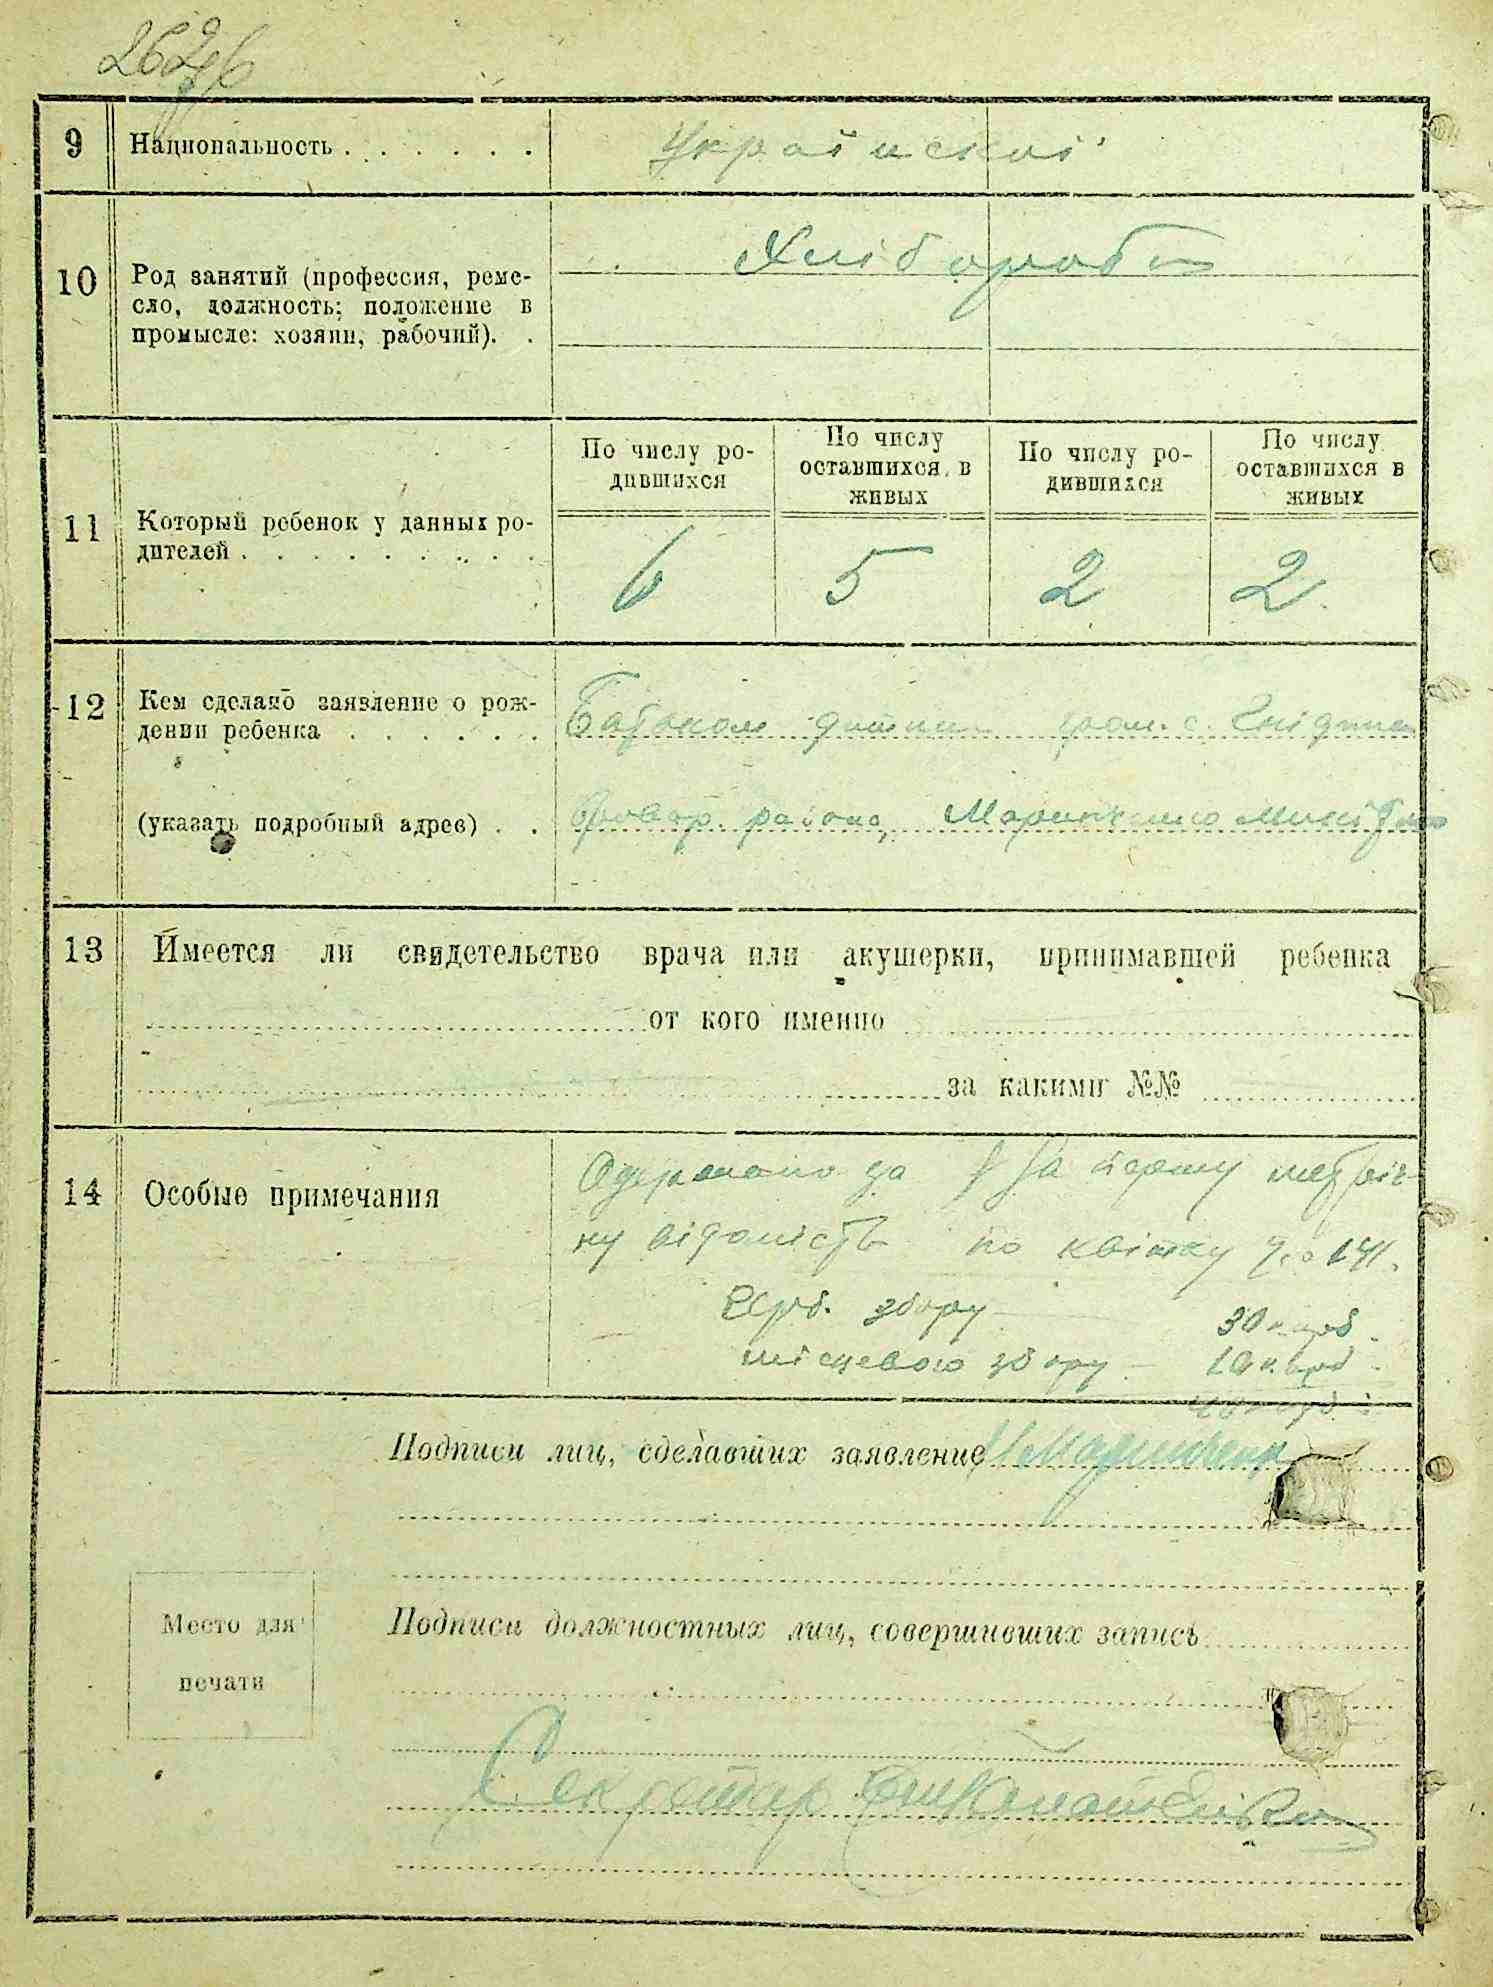 9 Национальность . . . . . . . Української
10 Род занятий (профессия, реме-
сло, должность; положение в
промысле: хозяин, рабочий). .
Хлібороби
11 Который ребенок у данных ро-
дителей . . . . . . . . . .
По числу ро-
дившихся
По числу
оставшихся в
живых
По числу ро-
дившихся
По числу
оставшихся в
живых
6 5 2 2
12 Кем сделано заявление о рож-
дении ребенка . . . . . .
(указать подробный адрес) . .
Батьком дитини гром. с. Гнідина
Бровар. района, Мариненко
13 Имеется ли свидетельство врача или акушерки, принимавшей ребенка
от кого именно
за какими №№
14 Особые примечания
Одержано за першу метрич-
ну відомість по квітку 141.
Герб. збору 30 карб.
місцевого збору 10 карб.
Подписи лиц, сделавших заявление Мариненко
Подписи должностных лиц, совершивших запись
Место для
печати
Секретар